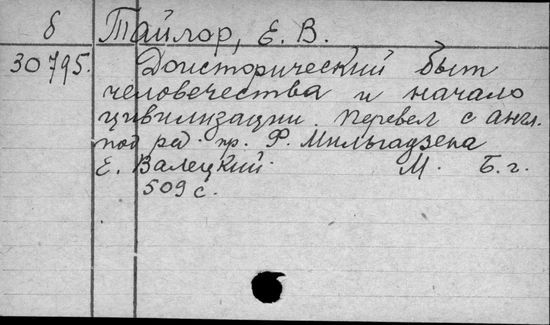 б Тайлор, Е. В.
30795. Доисторический быт
человечества и начало
цивилизации. Перевел с англ.
под ред. пр. Ф. Мильгаузена
Е. Валецкий. М. Б. г.
509 с.